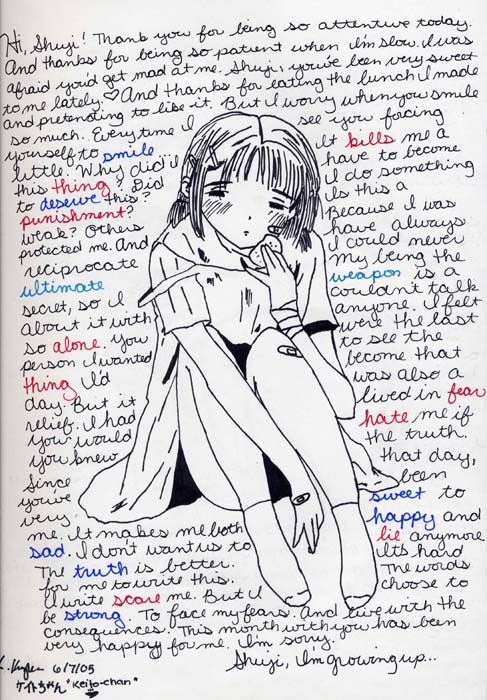 Hi, Shuji! Thank you for being so attentive today.
And thanks for being so patient when I'm slow. I was
afraid you'd get mad at me. Shuji, you've been very sweet
to me lately. ♡ And thanks for eating the lunch I made
and pretending to like it. But I worry when you smile
so much. Every time I see you forcing
yourself to smile It kills me a
little. Why did I have to become
this thing? Did I do something
to deserve this? Is this a
punishment? Because I was
weak? Others have always
protected me. And I could never
reciprocate My being the
ultimate weapon is a
secret, so I couldn't talk
about it with anyone. I felt
so alone. You were the last
person I wanted to see the
thing I'd become that
day. But it was also a
relief. I had lived in fear
you would hate me if
you knew the truth.
Since that day,
you've been
very sweet to
me. It makes me both happy and
sad. I don't want us to lie anymore
The truth is better. It's hard
for me to write this. The words
I write scare me. But I choose to
be strong. To face my fears. And live with the
consequences. This month with you has been
very happy for me. I'm sorry.
Shuji, I'm growing up...
6/7/05
ケイトちゃん "Keito-chan"